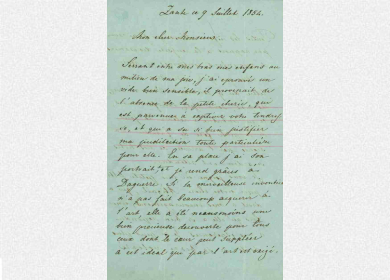 Zante ce 9 Juillet 1852.
Mon cher Monsieur.
Serrant entre mes bras mes enfans au
milieu de ma joie, j'ai éprouvé un
vide bien sensible, il provenait de
l'absence de la petite cherie, qui
est parvenue à captiver votre tendres
se, et qui a su si bien justifier
ma prédilection toute particulière
pour elle. En sa place j'ai son
portrait et je rend grâces à
Daguerre. Si sa merveilleuse invention
n'a pas fait beaucoup acquérir à
l'art, elle a été néanmoins une
bien precieuse decouverte pour tous
ceux dont le cœur peut suppléer
à cet ideal qui par l'art est exigé